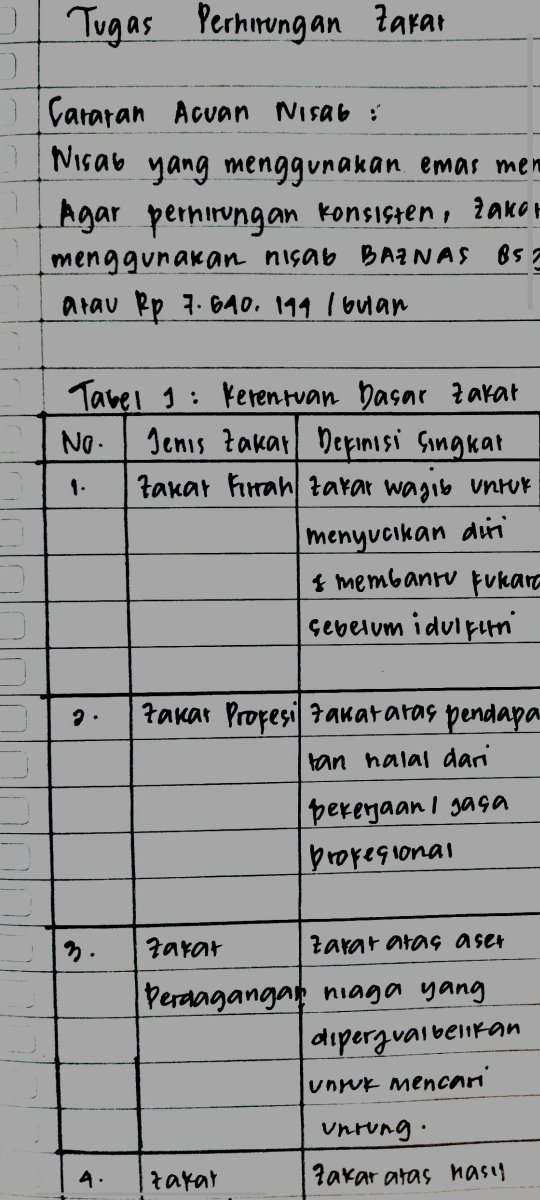 Tugas Perhitungan Zakat
Catatan Acuan Nisab :
Nisab yang menggunakan emas
Agar perhitungan konsisten, zakat
menggunakan nisab BAZNAS 85
atau Rp 7.640.144 / bulan
Tabel 1 : Ketentuan Dasar Zakat
No. Jenis Zakat Definisi Singkat
1. Zakat Fitrah Zakat wajib untuk
menyucikan diri
& membantu
sebelum idulfitri
2. Zakat Profesi Zakat atas pendapa
tan halal dari
pekerjaan / jasa
profesional
3. Zakat Zakat atas aset
Perdagangan niaga yang
diperjualbelikan
untuk mencari
untung.
4. Zakat Zakat atas hasil